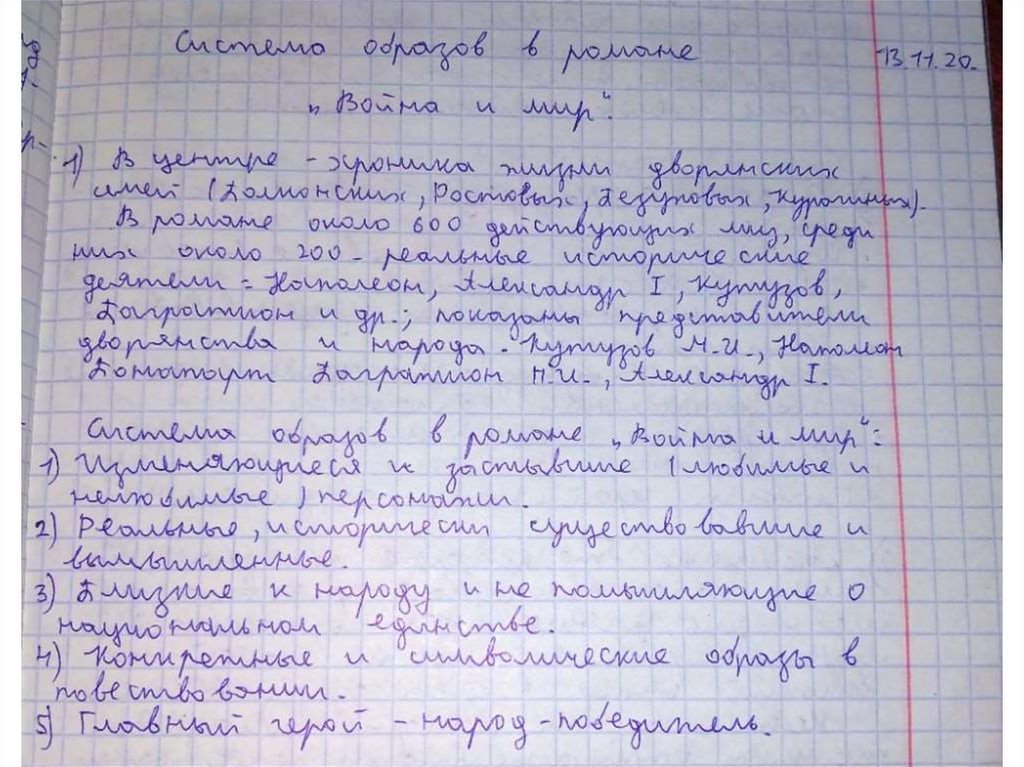 Система образов в романе 13.11.20.
„Война и мир“.
1) В центре - хроника жизни дворянских
семей (Болконских, Ростовых, Безуховых, Курагиных).
В романе около 600 действующих лиц, среди
них около 200 - реальные исторические
деятели = Наполеон, Александр I, Кутузов,
Багратион и др.; показаны представители
дворянства и народа. Кутузов М.И., Наполеон
Бонапарт Багратион П.И., Александр I.
Система образов в романе „Война и мир“:
1) Изменяющиеся и застывшие (любимые и
нелюбимые) персонажи.
2) Реальные, исторически существовавшие и
вымышленные.
3) Близкие к народу и не помышляющие о
национальном единстве.
4) Конкретные и символические образы в
повествовании.
5) Главный герой - народ - победитель.